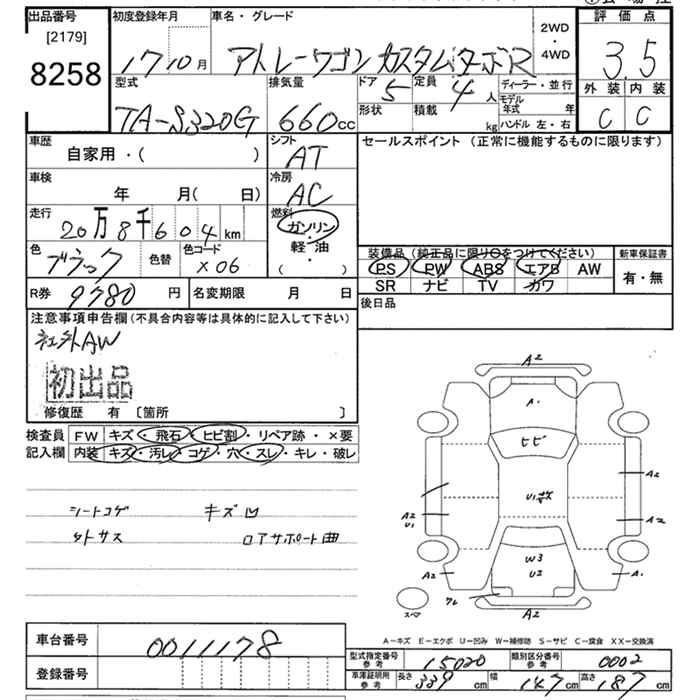 出品番号
[2179]
8258
初度登録年月
17 10月
車名・グレード
アトレーワゴン カスタムターボR
2WD
・
4WD
評価点
3.5
外装 内装
C C
型式
TA-S320G
排気量
660cc
ドア 5
形状
定員 4人
積載 kg
ディーラー・並行
モデル年式 年
ハンドル 左・右
車歴
自家用・( )
シフト
AT
セールスポイント (正常に機能するものに限ります)
車検
年 月( 日)
冷房
AC
走行
20万8千604km
燃料
ガソリン
・
軽・油
( )
色
ブラック
色替
色コード
X06
装備品 (純正品に限り○をつけてください)
PS PW ABS エアB AW
SR ナビ TV カワ
新車保証書
有・無
R券 9780円
名変期限 月 日
後日品
注意事項申告欄(不具合内容等は具体的に記入して下さい)
社外AW
初出品
修復歴 有 〔箇所 〕
検査員 FW キズ・飛石・ヒビ割・リペア跡・×要
記入欄 内装 キズ・汚レ・コゲ・穴・スレ・キレ・破レ
シートコゲ キズ凹
外サス ロアサポート曲
A2
A・
ヒビ
A2
A2
U1
U1
A2
W3
U2
A2
A・
スペア
A2
A-キズ E-エクボ U-凹み W-補修跡 S-サビ C-腐食 XX-交換済
車台番号
0011178
登録番号
型式指定番号
参考
15020
類別区分番号
参考
0002
車庫証明用
参考
長さ 339cm 幅 147cm 高さ 187cm